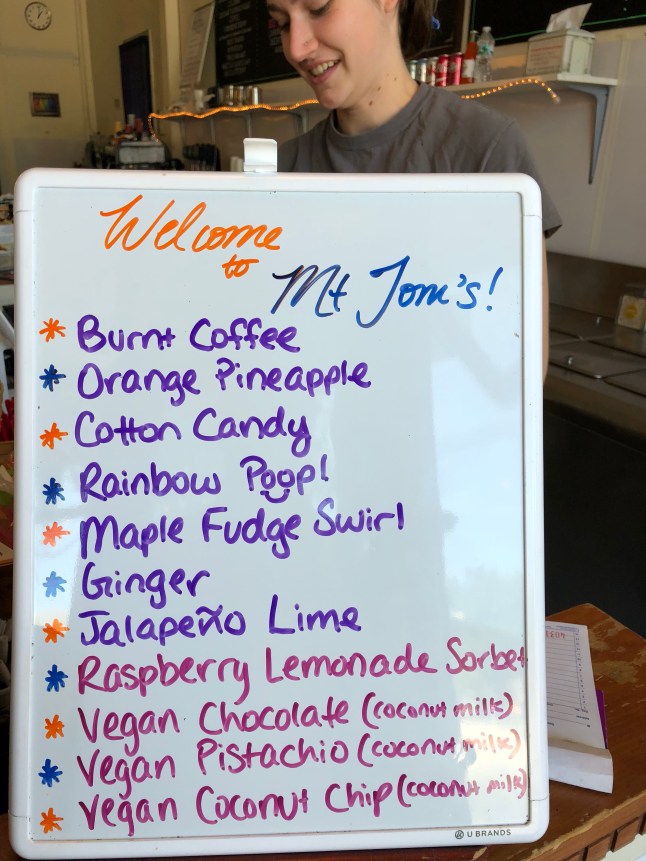 Welcome
to
Mt Tom's!
* Burnt Coffee
* Orange Pineapple
* Cotton Candy
* Rainbow Poop!
* Maple Fudge Swirl
* Ginger
* Jalapeño Lime
* Raspberry Lemonade Sorbet
* Vegan Chocolate (coconut milk)
* Vegan Pistachio (coconut milk)
* Vegan Coconut Chip (coconut milk)
U BRANDS